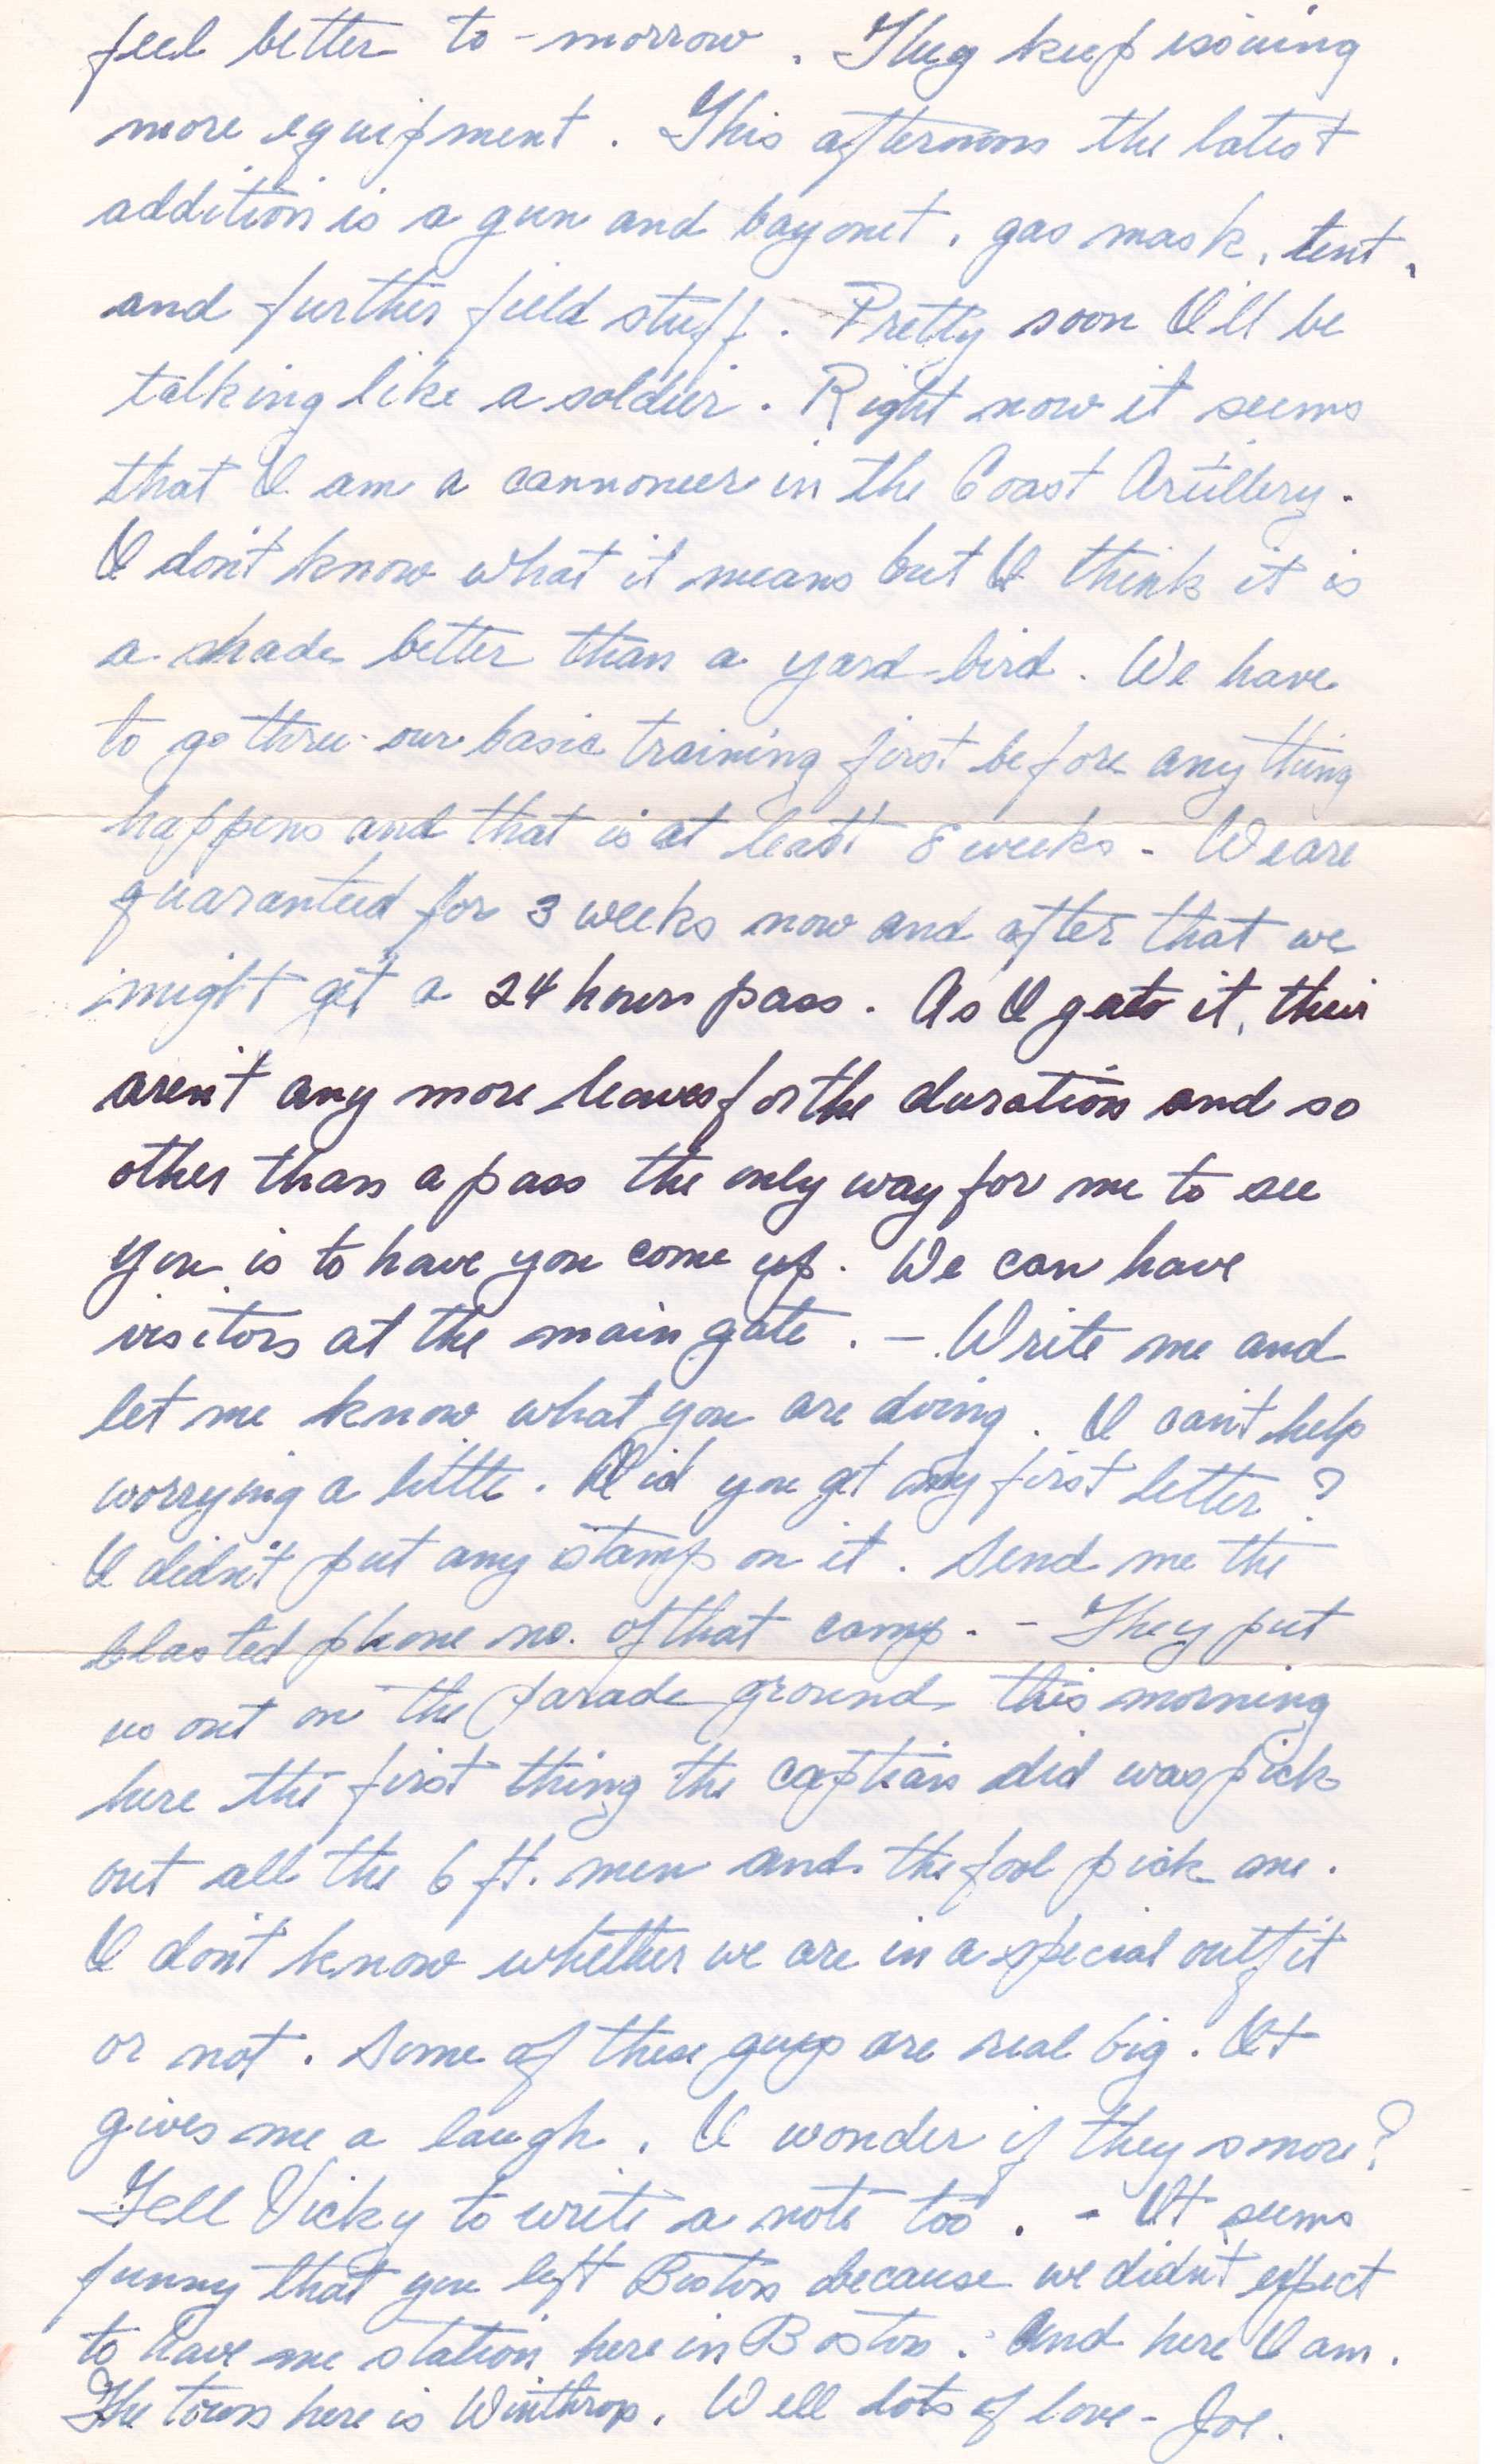 feel better to-morrow. They keep issuing
more equipment. This afternoons the latest
addition is a gun and bayonet, gas mask, tent,
and further field stuff. Pretty soon I'll be
talking like a soldier. Right now it seems
that I am a cannoneer in the Coast Artillery.
I don't know what it means but I think it is
a shade better than a yard-bird. We have
to go thru our basic training first before anything
happens and that is at least 8 weeks - We are
quaranteed for 3 weeks now and after that we
might get a 24 hours pass. As I gato it, their
aren't any more leaves for the duration and so
other than a pass the only way for me to see
you is to have you come up. We can have
visitors at the main gate. - Write me and
let me know what you are doing. I can't help
worrying a little. Did you get my first letter?
I didn't put any stamp on it. Send me the
blasted phone no. of that camp. - They put
us out on the parade ground this morning
here the first thing the captain did was pick
out all the 6 ft. men and the fool pick me.
I don't know whether we are in a special outfit
or not. Some of these guys are real big. It
gives me a laugh. I wonder if they snore?
Tell Vicky to write a note too. - It seems
funny that you left Boston because we didn't expect
to have me station here in Boston. And here I am.
The town here is Winthrop. Well lots of love - Joe.